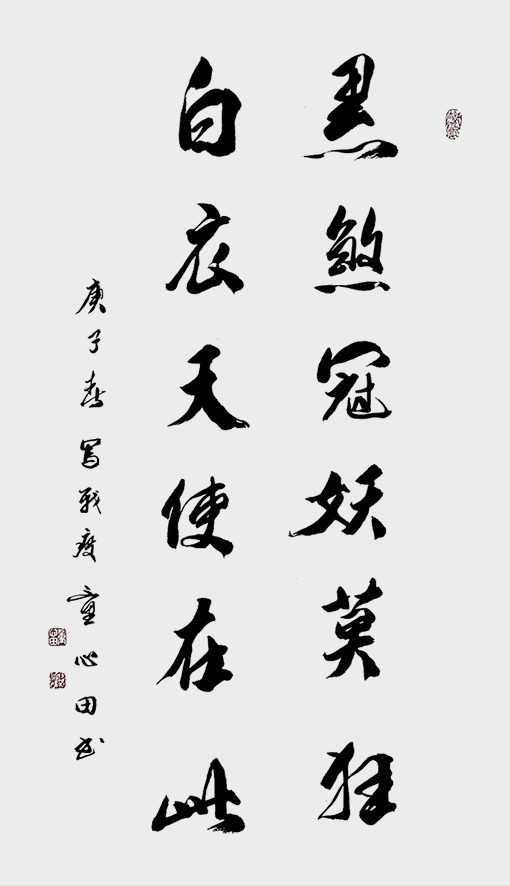 黑煞冠妖莫狂
白衣天使在此
庚子春写战疫童心田书